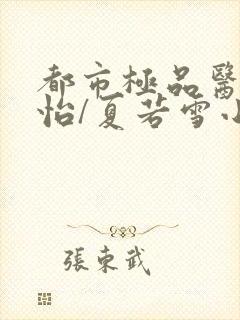 都市極品醫
怡/夏若雪小
張東武